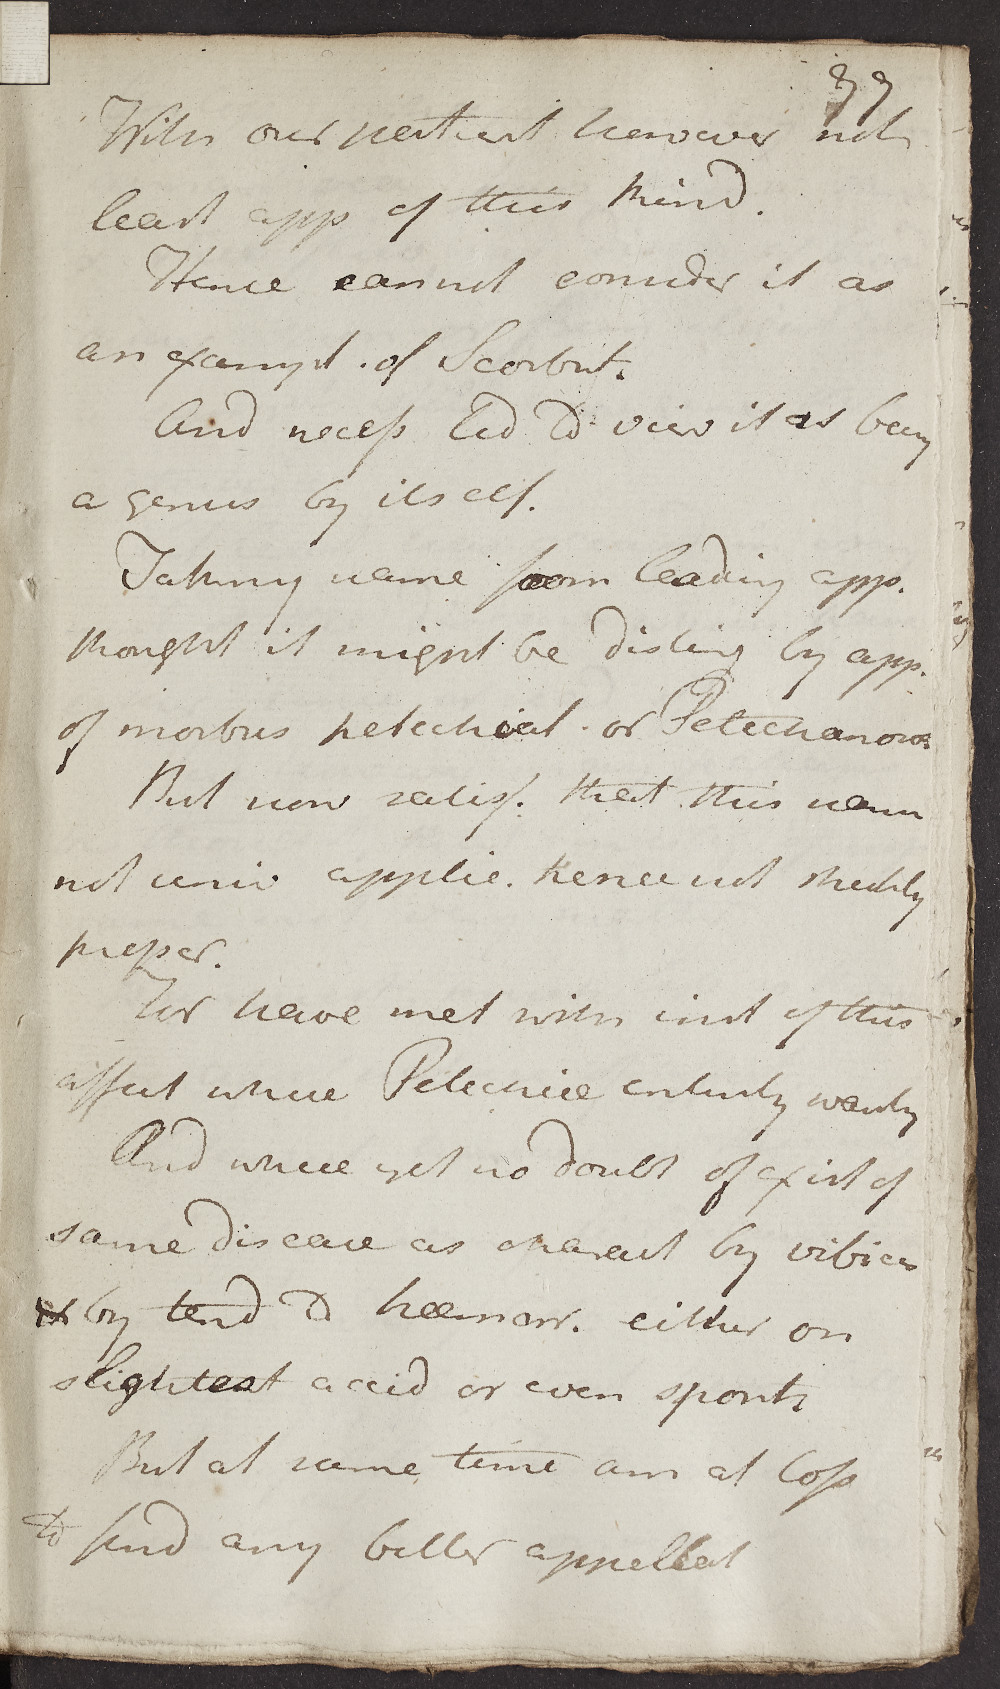 39
With our patient however not
least app of this kind.
Hence cannot consider it as
an exampl. of Scorbut.
And necess led to view it as being
a genus by itself.
Taking name from leading app.
thought it might be disting by app.
of morbus petechial. or Petechanosos
But now satisf. that this name
not univ applic. hence not strictly
proper.
For have met with inst of this
affect where Petechiæ entirely wanting
And where yet no doubt of exist of
same disease as charact by vibices
by tend to hæmorr. either on
slightest accid or even spont.
But at same time am at loss
to find any better appellat